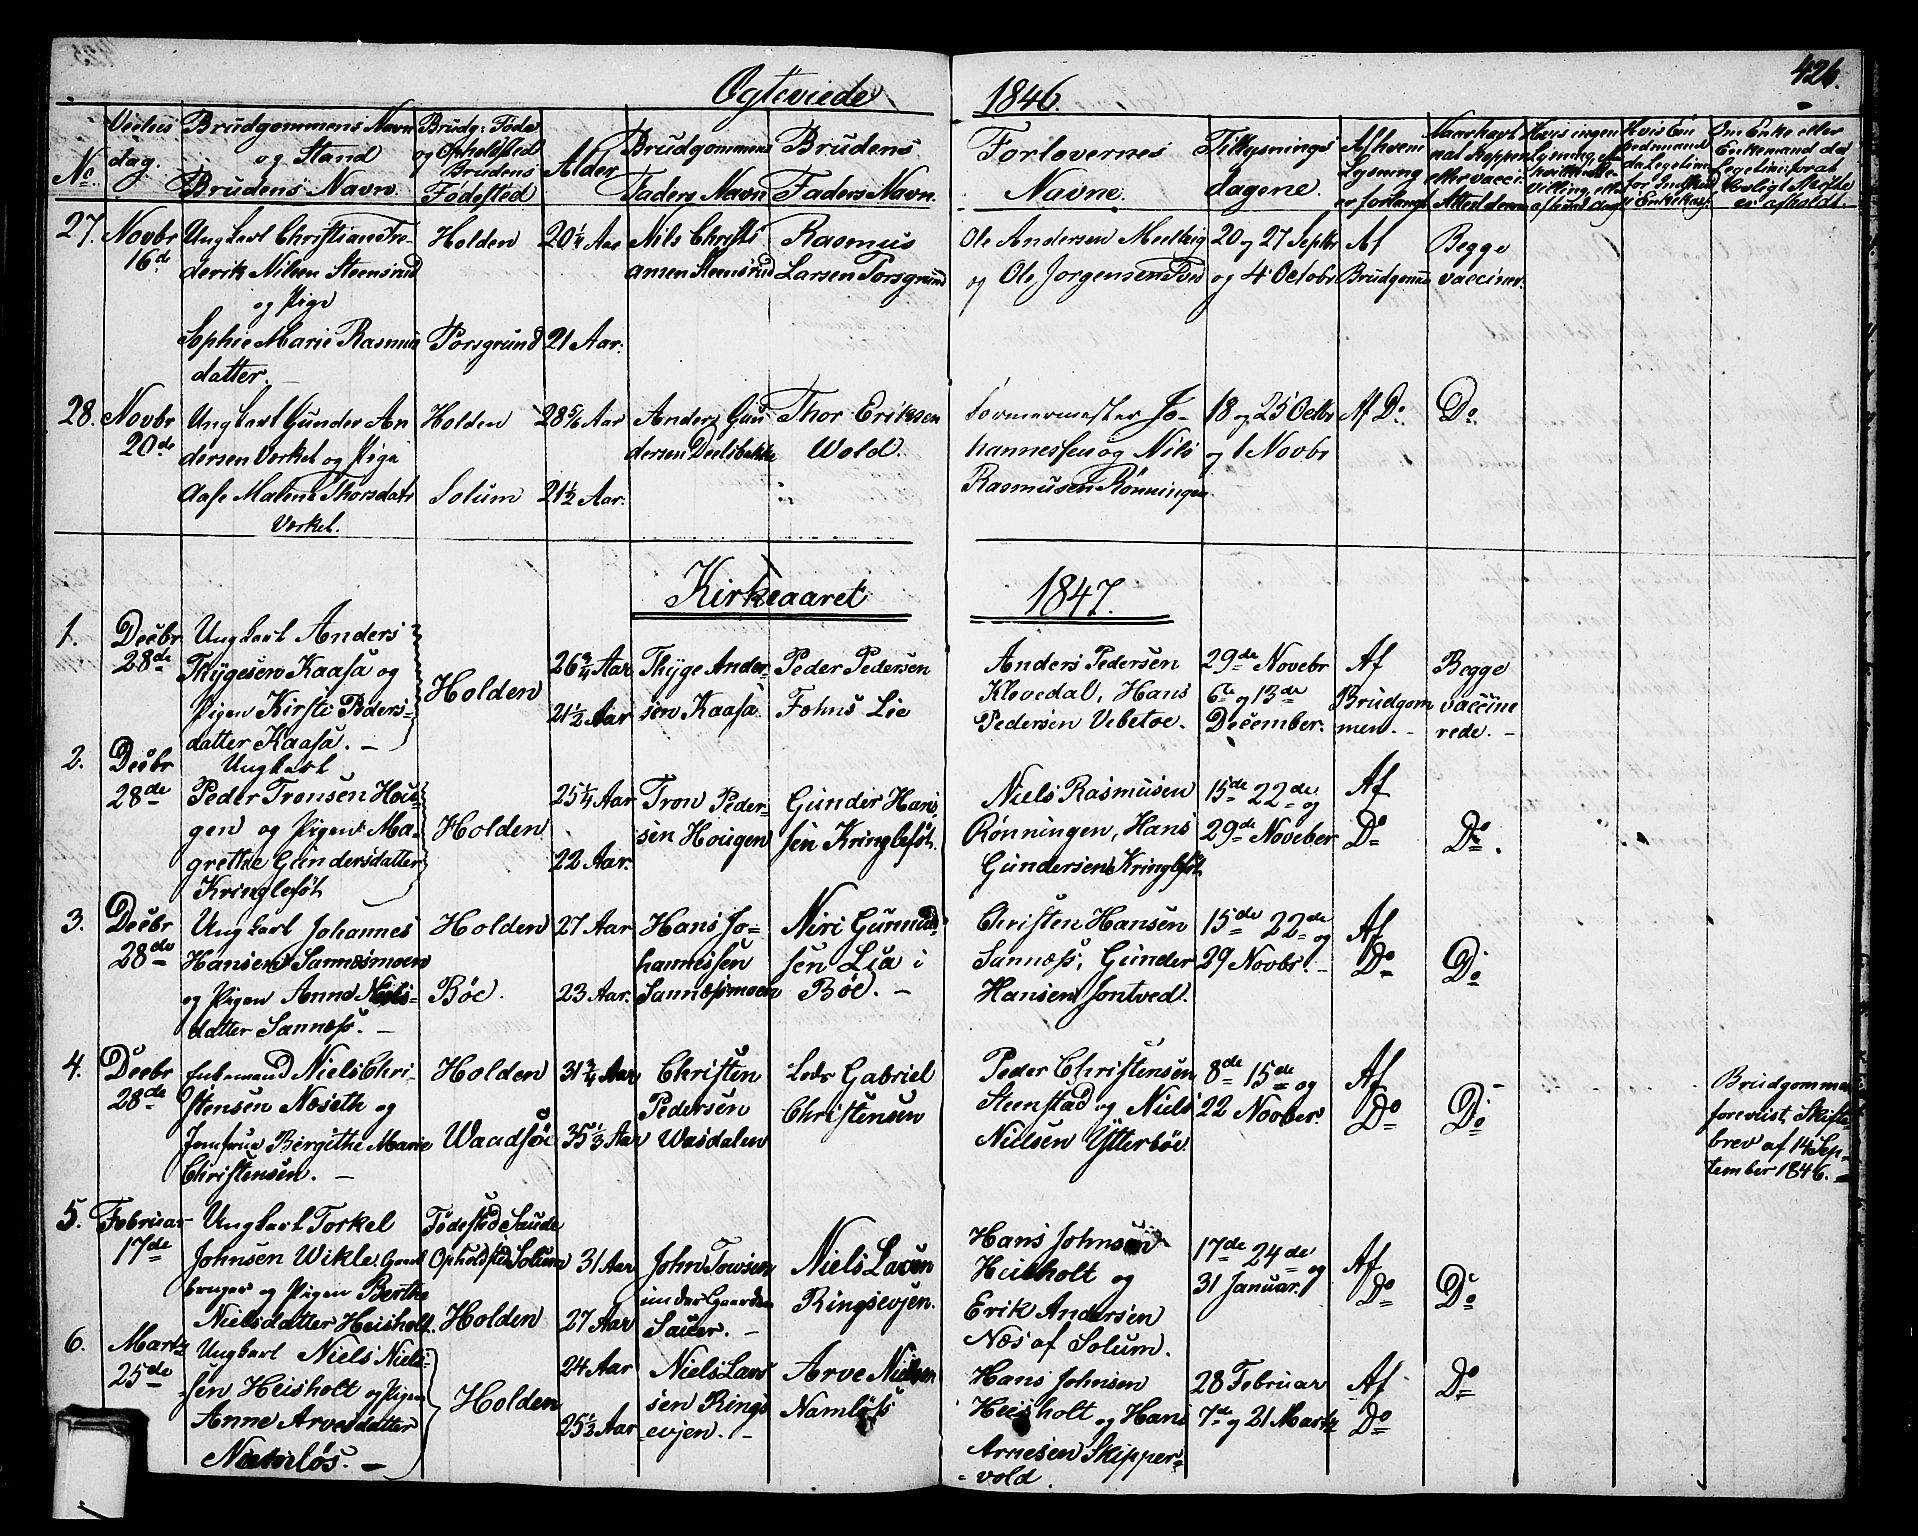 426.
Ogteviede 1846.
No.
Vielses
dag.
Brudgommens Navn
og Stand
Brudens Navn.
Brudg: Føde
og Opholdsted
Brudens
Fødested
Alder
Brudgommens
Faders Navn
Brudens
Faders Navn.
Forlovernes
Navne.
Tillysnings
dagene.
Af hvem
Lysning
er forlangt
27. Novbr
16de
Ungkarl Christian Fre
derik Nilsen Steensrud
og Pige
Sophie Marie Rasmus
datter.
Holden
Porsgrund
20 1/4 Aar
21 Aar.
Nils Christi
ansen Steensrud
Rasmus
Larsen Porsgrund
Ole Andersen
og Ole Jorgensen
20 og 27 Septbr
og 4 Octobr
Af
Brudgomm
Begge
vacciner.
28. Novbr
20de
Ungkarl Gunder An
dersen Verket og Pige
Aase Malene Thorsdatr
Verket.
Holden
Solum
28 5/6 Aar
21 1/2 Aar.
Anders Gun
dersen Deelibakke
Thor Eriksen
Wold.
Formermester Jo-
hannessen og Nils
Rasmusen Rønningen
18 og 25 Octbr
og 1 Novbr
Af Do
Do
Kirkeaaret 1847.
1. Decbr
28de
Ungkarl Anders
Thygesen Kaasa og
Pigen Kirsti Peders-
datter Kaasa. –
Holden
26 3/4 Aar
21 1/2 Aar
Thyge Ander-
sen Kaasa.
Peder Pedersen
Fohns Lie
Anders Pedersen
Klovedal, Hans
Pedersen Vebetoe.
29de Novebr
6te og 13de
December.
Af
Brudgom
men. –
Begge
vaccine
rede. –
2. Decbr
28de
Ungkarl
Peder Tronsen Hou-
gen og Pigen Ma-
grethe Gundersdatter
Kringlesøt
Holden
25 1/4 Aar
22 Aar.
Tron Peder-
sen Hougen
Gunder Han-
sen Kringlesøt.
Niels Rasmusen
Rønningen, Hans
Gundersen Kringlesøt
15de 22de og
29de Noveber
Af
Do
Do.
3. Decbr
28de
Ungkarl Johannes
Hansen Sannæsmoen
og Pigen Anne Niris-
datter Sannæss. –
Holden
Bøe.
27 Aar
23 Aar.
Hans Jo-
hannessen
Sannæsmoen
Niri Gunnud-
sen Lia i
Bøe. –
Christen Hansen
Sannæss, Gunder
Hansen Jontved.
15de 22de og
29 Novbr. –
Af
Do
Do
4. Decbr
28de
Enkemand Niels Chri-
stensen Næseth og
Jomfrue Bergithe Marie
Christensen. –
Holden
Waadsøe
31 3/4 Aar
35 1/3 Aar
Christen
Pedersen
Wasdalen
Lods Gabriel
Christensen
Peder Christensen
Steenstad og Niels
Nielsen Ytterbøe
8de 15de og
22 Noober.
Af
Do
Do
Brudgommen
foreviist Skifte-
brev af 14 Sep-
tember 1846. –
5. Februar
17de
Ungkarl Torkel
Johnsen Wikle, Gaard
bruger og Pigen Berthe
Nielsdatter Heisholt.
Fødested Saude
Opholdsted Solum
Holden
31 Aar
27 Aar
John Towsen
under Gaarden
Sauer. –
Niels Lavsen
Ringsevjen.
Hans Johnsen
Heisholt og
Erik Andersen
Næs af Solum.
17de 24de og
31 Januar.
Af
Do
Do
6. Marts
25de
Ungkarl Niels Niel-
sen Heisholt og Pigen
Anne Arvesdatter
Namløs. –
Holden
24 Aar
25 1/3 Aar
Niels Lavs
sen Rings
evjen. –
Arve Nielsen
Namløs
Hans Johnsen
Heisholt og Hans
Arnesen Skipper-
vold.
28 Februar
7de og 21 Marts
Af
Do
Do